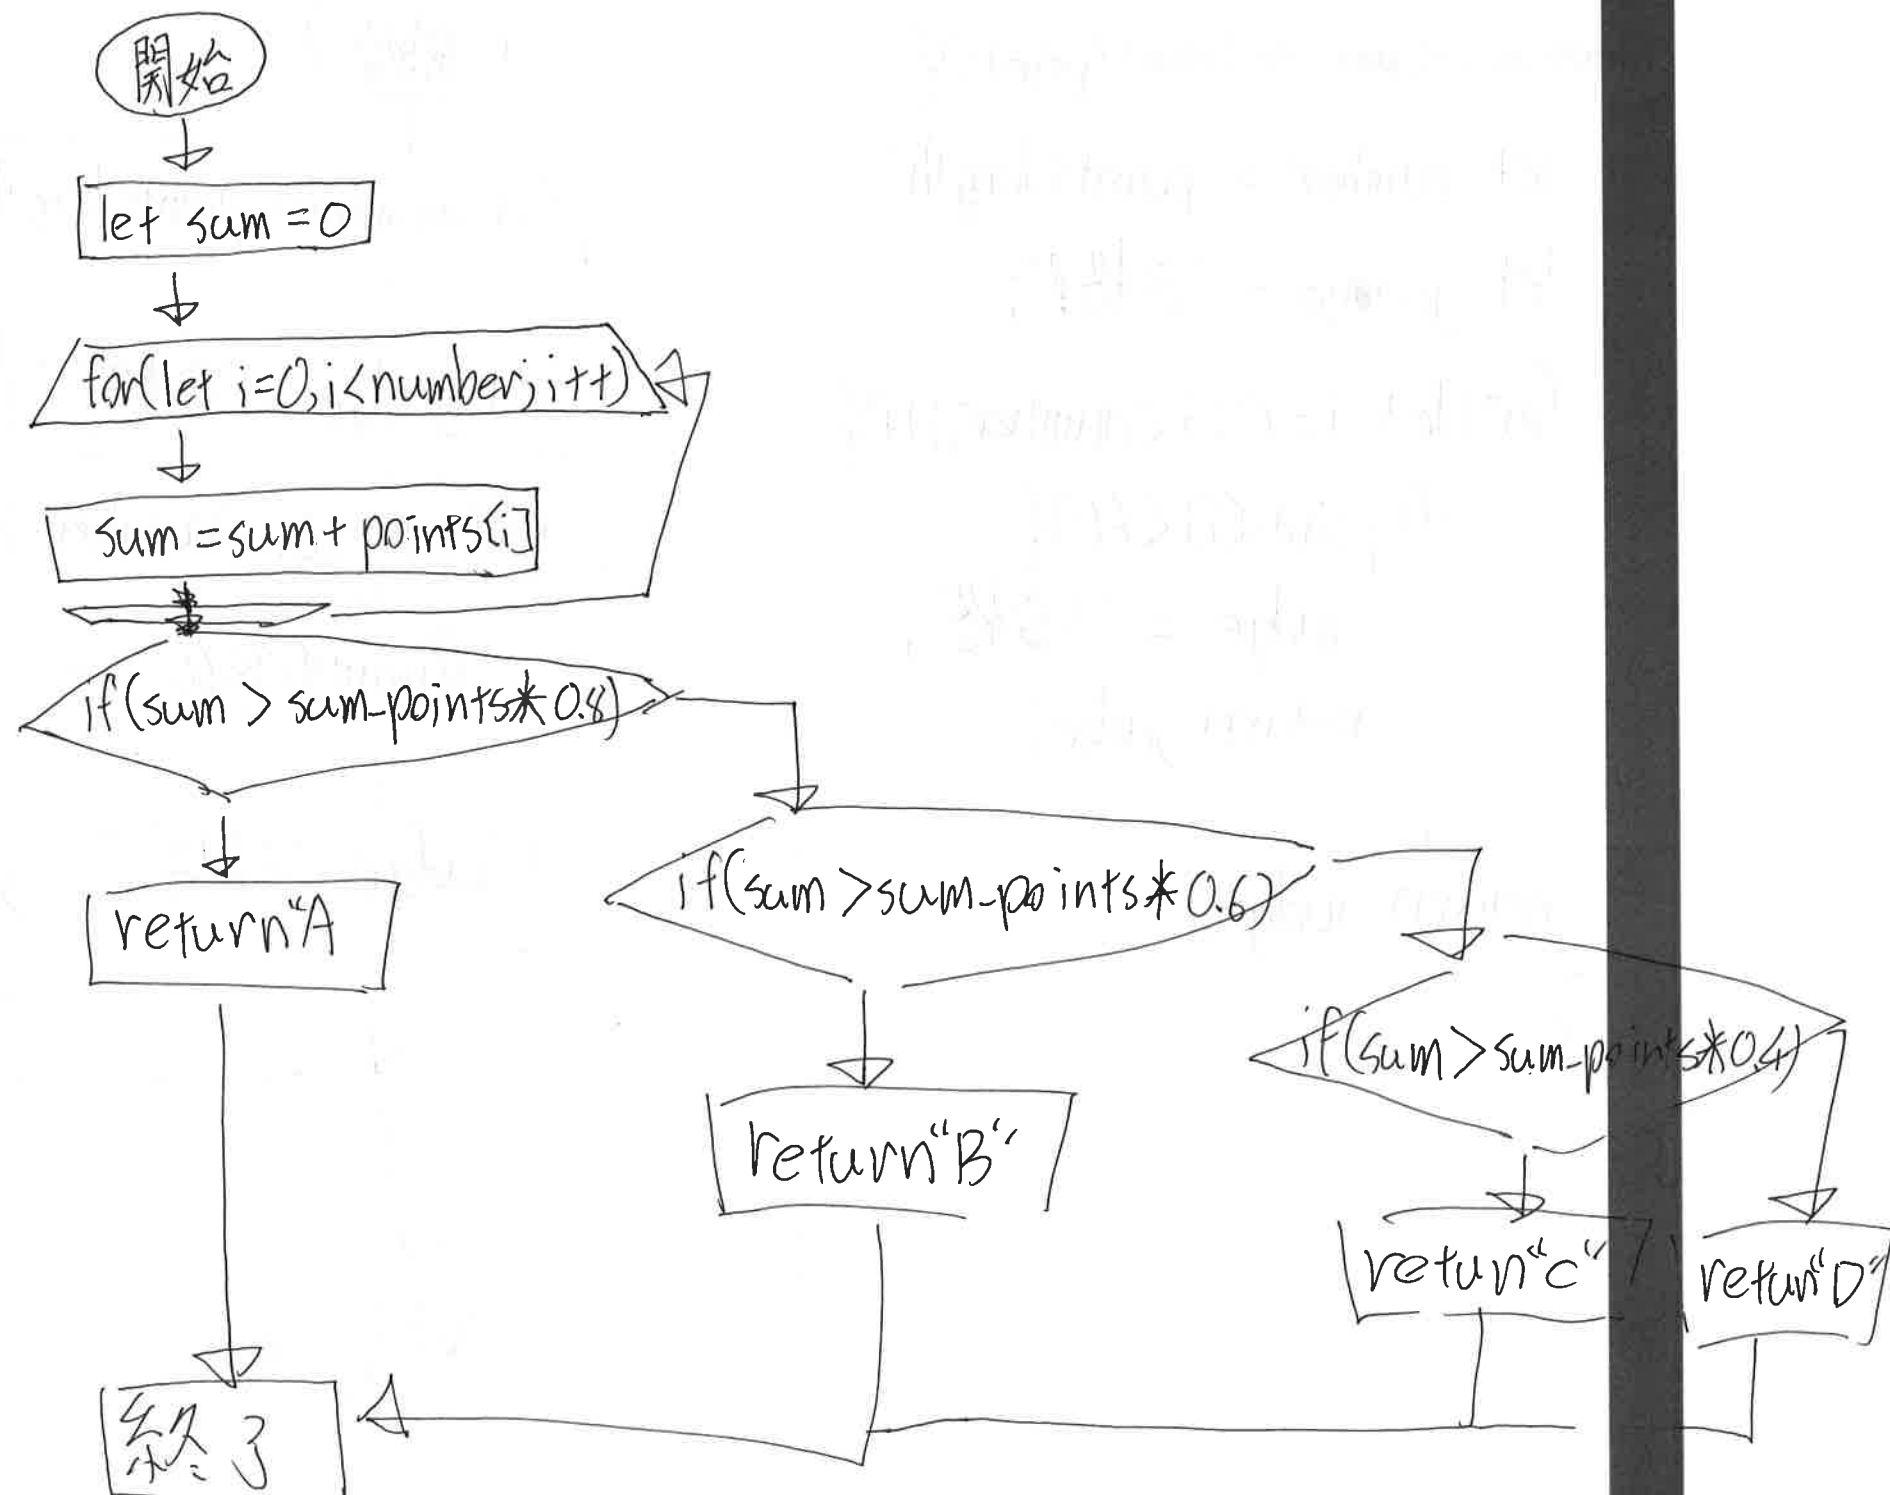 開始
let sum = 0
for(let i=0, i<number; i++)
sum = sum + points[i]
if(sum > sum_points * 0.8)
return "A
if(sum > sum_points * 0.6)
return "B"
if(sum > sum_points * 0.4)
retun "C"
retun "D"
終了